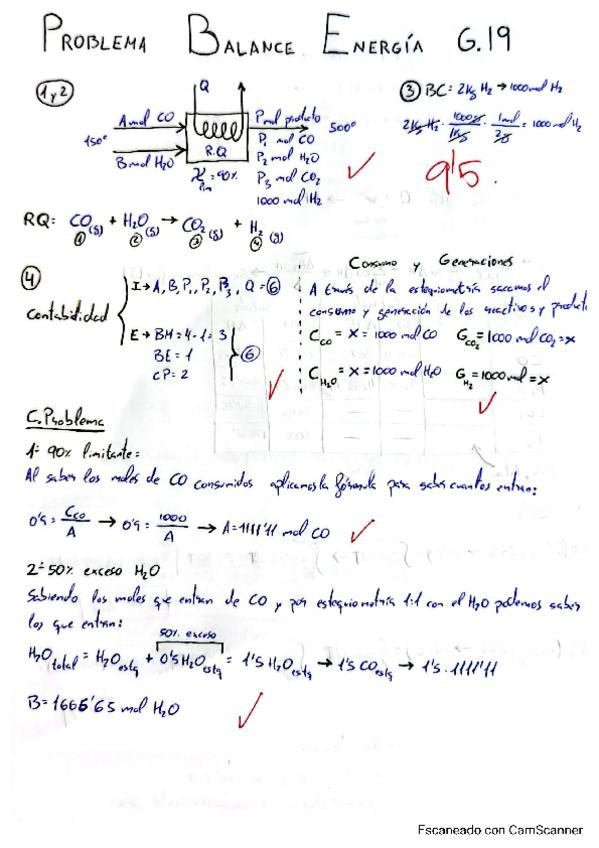 PROBLEMA BALANCE ENERGÍA G.19
1 y 2
Q
A mol CO
150º
B mol H2O
R.Q
X lim = 90%
P mol producto
500º
P1 mol CO
P2 mol H2O
P3 mol CO2
1000 mol H2
3 BC = 2Kg H2 → 1000 mol H2
2Kg H2 · 1000g/1Kg · 1mol/2g = 1000 mol H2
9'5.
RQ: CO(g) + H2O(g) → CO2(g) + H2(g)
1 2 3 4
4
Contabilidad
I → A, B, P1, P2, P3, Q = 6
E → BM = 4 - 1 = 3
BE = 1
CP = 2
6
Consumo y Generaciones
A través de la estequiometría sacamos el
consumo y generación de los reactivos y product
C CO = x = 1000 mol CO G CO2 = 1000 mol CO2 = x
C H2O = x = 1000 mol H2O G H2 = 1000 mol = x
C. Problema
1º 90% limitante:
Al saber los moles de CO consumidos aplicamos la fórmula para saber cuantos entran:
0'9 = C CO/A → 0'9 = 1000/A → A = 1111'11 mol CO
2º 50% exceso H2O
Sabiendo los moles que entran de CO y por estequiometría 1:1 con el H2O podemos saber
los que entran:
50% exceso
H2O total = H2O estq + 0'5 H2O estq = 1'5 H2O estq → 1'5 CO estq → 1'5 · 1111'11
B = 1666'65 mol H2O
Escaneado con CamScanner